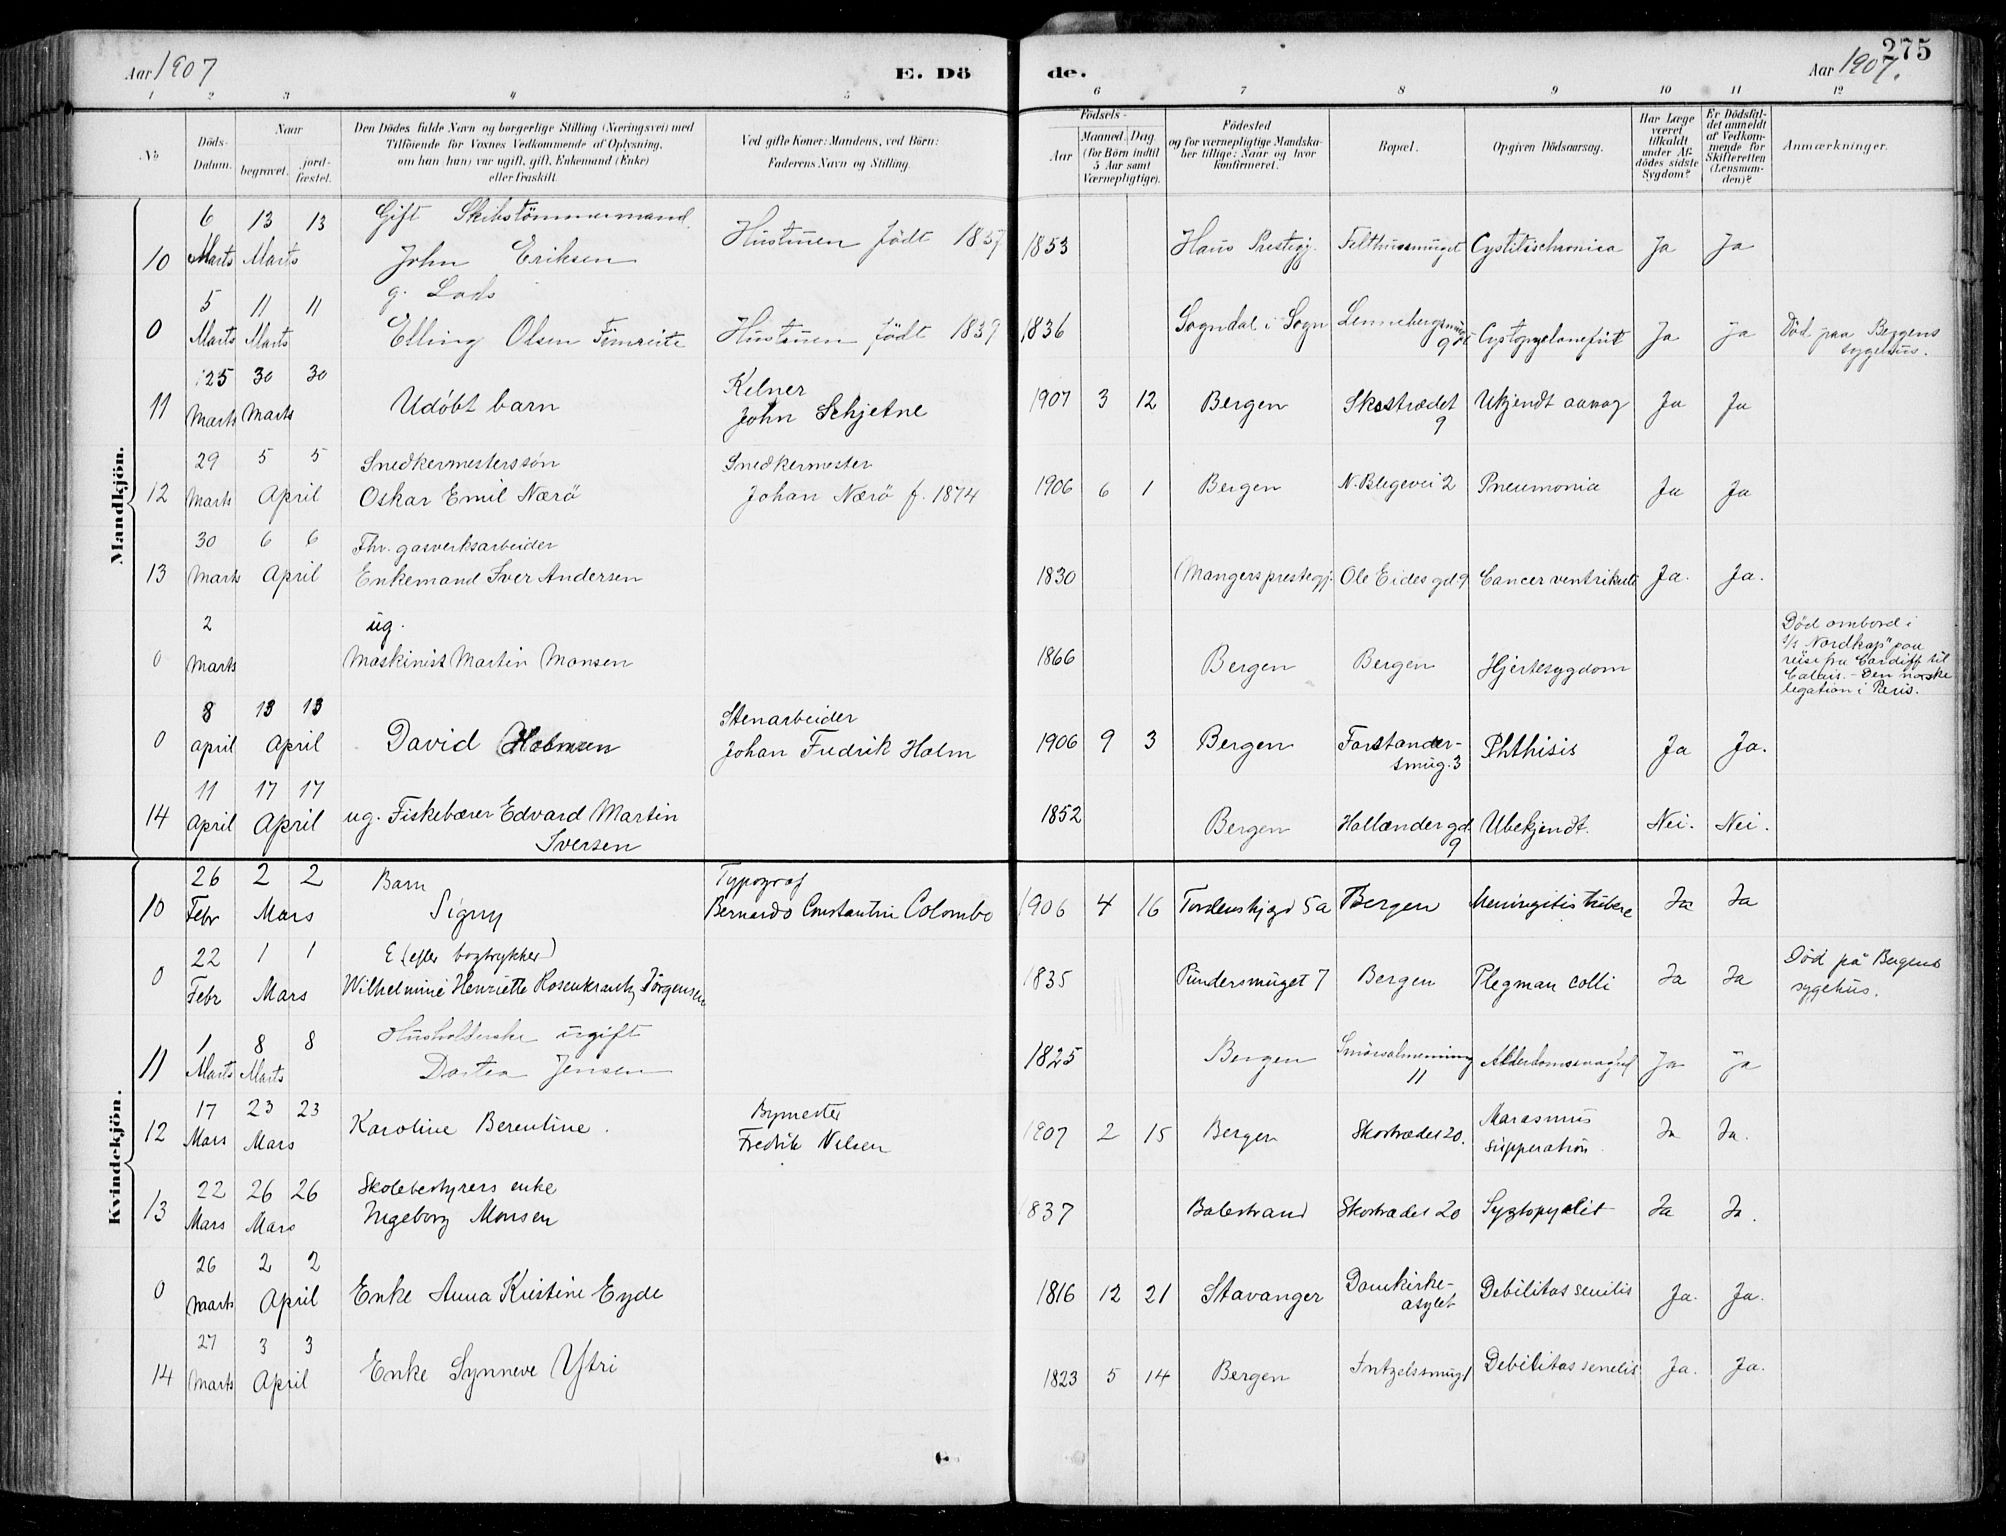 275
Aar 1907
E. Dö
de.
Aar 1907.
1 2 3 4 5 6 7 8 9 10 11 12
No
Döds-Datum.
Naar
begravet.
jord-fæstet.
Den Dödes fulde Navn og borgerlige Stilling (Næringsvei) med
Tilföiende for Voxnes Vedkommende af Oplysning,
om han (hun) var ugift, gift, Enkemand (Enke)
eller fraskilt.
Ved gifte Koner: Mandens, ved Börn:
Faderens Navn og Stilling
Födsels-
Aar
Maaned. Dag.
(for Börn indtil
5 Aar samt
Værnepligtige).
Födested
og for værnepligtige Mandska-
ber tillige: Naar og hvor
konfirmeret.
Bopæl.
Opgiven Dödsaarsag.
Har Læge
været
tilkaldt
under Af-
dödes sidste
Sygdom?
Er Dödsfal-
det anmeldt
af Vedkom-
mende for
Skifteretten
(Lensman-
den)?
Anmærkninger.
Mandkjön.
10 6 Marts 13 Marts 13 Gift Skibstömmermand
John Eriksen Hustruen født 1857 1853 Haus Prestegj. Felthussmuget Cystitis chronica Ja Ja
0 5 Marts 11 Marts 11 g. Lods
Elling Olsen Fimreite Hustruen født 1839 1836 Sogndal i Sogn Lennebergsmug 9 Cystopyelonefrit Ja Ja Död paa Bergens
sygehus.
11 25 Marts 30 Marts 30 Udöbt barn Kelner
John Schjetne 1907 3 12 Bergen Skostrædet
9 Ukjendt aarsag Ja Ja
12 29 Marts 5 5 April Snedkermesterssön
Oskar Emil Nærö Snedkermester
Johan Nærö f. 1874 1906 6 1 Bergen N. Blegevei 2 Pneumonia Ja Ja
13 30 Marts 6 6 April Fhv. gasverksarbeider
Enkemand Iver Andersen 1830 Mangers prestegj. Ole Eides gd 9 Cancer ventrikuli Ja. Ja.
0 2 Marts ug.
Maskinist Martin Monsen 1866 Bergen Bergen Hjertesygdom Död ombord i
s/s "Nordkap" paa
reise fra Cardiff til
Calais. - Den norske
legation i Paris.
0 8 april 13 13 April David Holmsen Stenarbeider
Johan Fredrik Holm 1906 9 3 Bergen Forstander-
smug. 3 Phthisis Ja Ja.
14 11 April 17 17 April ug. Fiskebærer Edvard Martin
Iversen 1852 Bergen Hollænder gd.
9 Ubekjendt. Nei. Nei.
Kvindekjön.
10 26 Febr 2 2 Mars Barn
Signy Typograf
Bernardo Constantin Colombo 1906 4 16 Tordenskjgd 5a Bergen Meningitis tuberc Ja Ja
0 22 Febr 1 1 Mars E (efter bogtrykker)
Wilhelmine Henriette Rosenkrantz Jörgensen 1835 Pundersmuget 7 Bergen Plegman colli Ja Ja Död på Bergens
sygehus.
11 1 Marts 8 Marts 8 Husholderske ugift
Dortea Jensen 1825 Bergen Smörsalmenning
11 Alderdomssvaghed Ja Ja
12 17 Mars 23 23 Mars Karoline Berentine. Bymester
Fredrik Nelsen 1907 2 15 Bergen Skostrædet 20. Marasmus
supperation Ja Ja.
13 22 Mars 26 26 Mars Skolebestyrers enke
Ingeborg Monsen 1837 Balestrand Skostrædet 20 Systopyelit Ja Ja.
0 26 marts 2 2 April Enke Anna Kristine Eyde 1816 12 21 Stavanger Domkirke-
asylet Debilitas senilis Ja. Ja.
14 27 Marts 3 3 April Enke Synneve Ytri 1823 5 14 Bergen Intzelssmug 1 Debilitas senelis Ja. Ja.